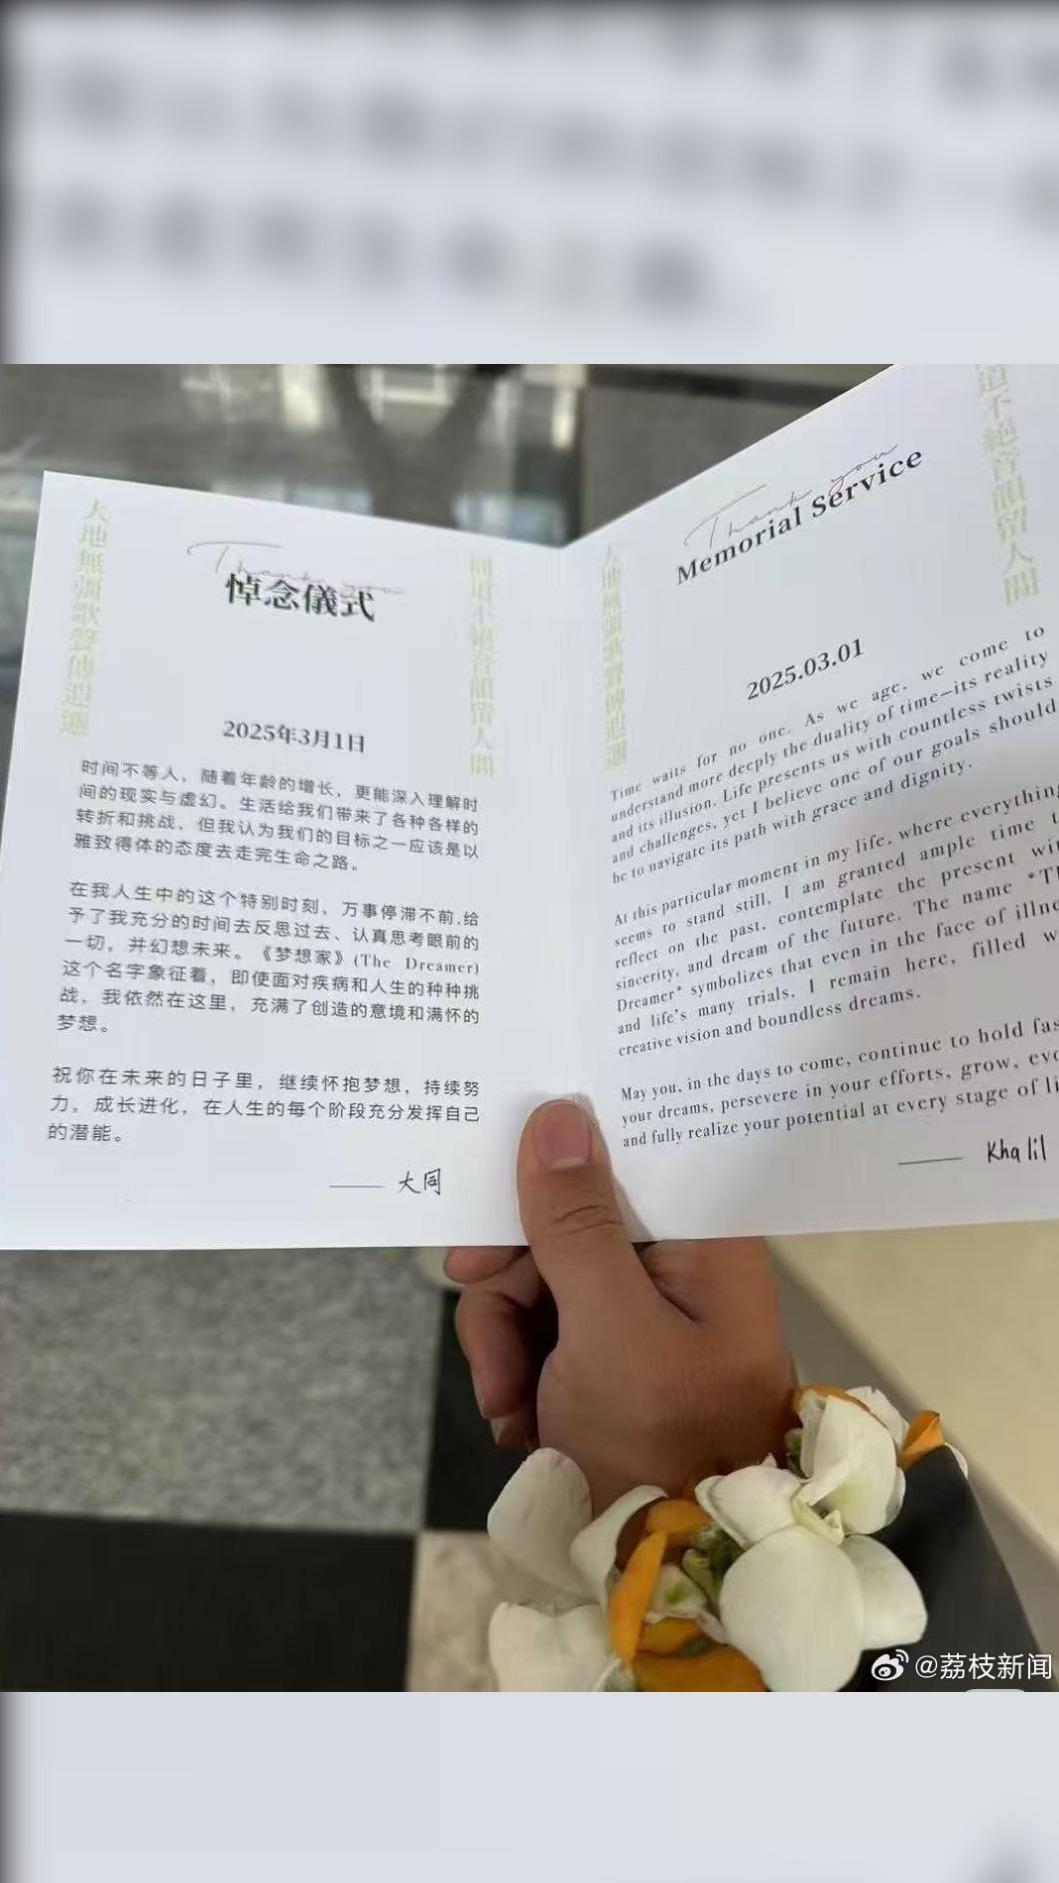 天地無疆歌聲傳遐邇
Thank you
悼念儀式
同道不絕音韻留人間
2025年3月1日
时间不等人，随着年龄的增长，更能深入理解时
间的现实与虚幻。生活给我们带来了各种各样的
转折和挑战，但我认为我们的目标之一应该是以
雅致得体的态度去走完生命之路。
在我人生中的这个特别时刻，万事停滞不前,给
予了我充分的时间去反思过去、认真思考眼前的
一切，并幻想未来。《梦想家》(The Dreamer)
这个名字象征着，即使面对疾病和人生的种种挑
战，我依然在这里，充满了创造的意境和满怀的
梦想。
祝你在未来的日子里，继续怀抱梦想，持续努
力，成长进化，在人生的每个阶段充分发挥自己
的潜能。
—— 大同
天地無疆歌聲傳遐邇
Thank you
Memorial Service
道不絕音韻留人間
2025.03.01
Time waits for no one. As we age, we come to
understand more deeply the duality of time—its reality
and its illusion. Life presents us with countless twists
and challenges, yet I believe one of our goals should
be to navigate its path with grace and dignity.
At this particular moment in my life, where everything
seems to stand still, I am granted ample time t
reflect on the past, contemplate the present wi
sincerity, and dream of the future. The name *Th
Dreamer* symbolizes that even in the face of illne
and life's many trials, I remain here, filled w
creative vision and boundless dreams.
May you, in the days to come, continue to hold fas
your dreams, persevere in your efforts, grow, evo
and fully realize your potential at every stage of li
—— Khalil
@荔枝新闻